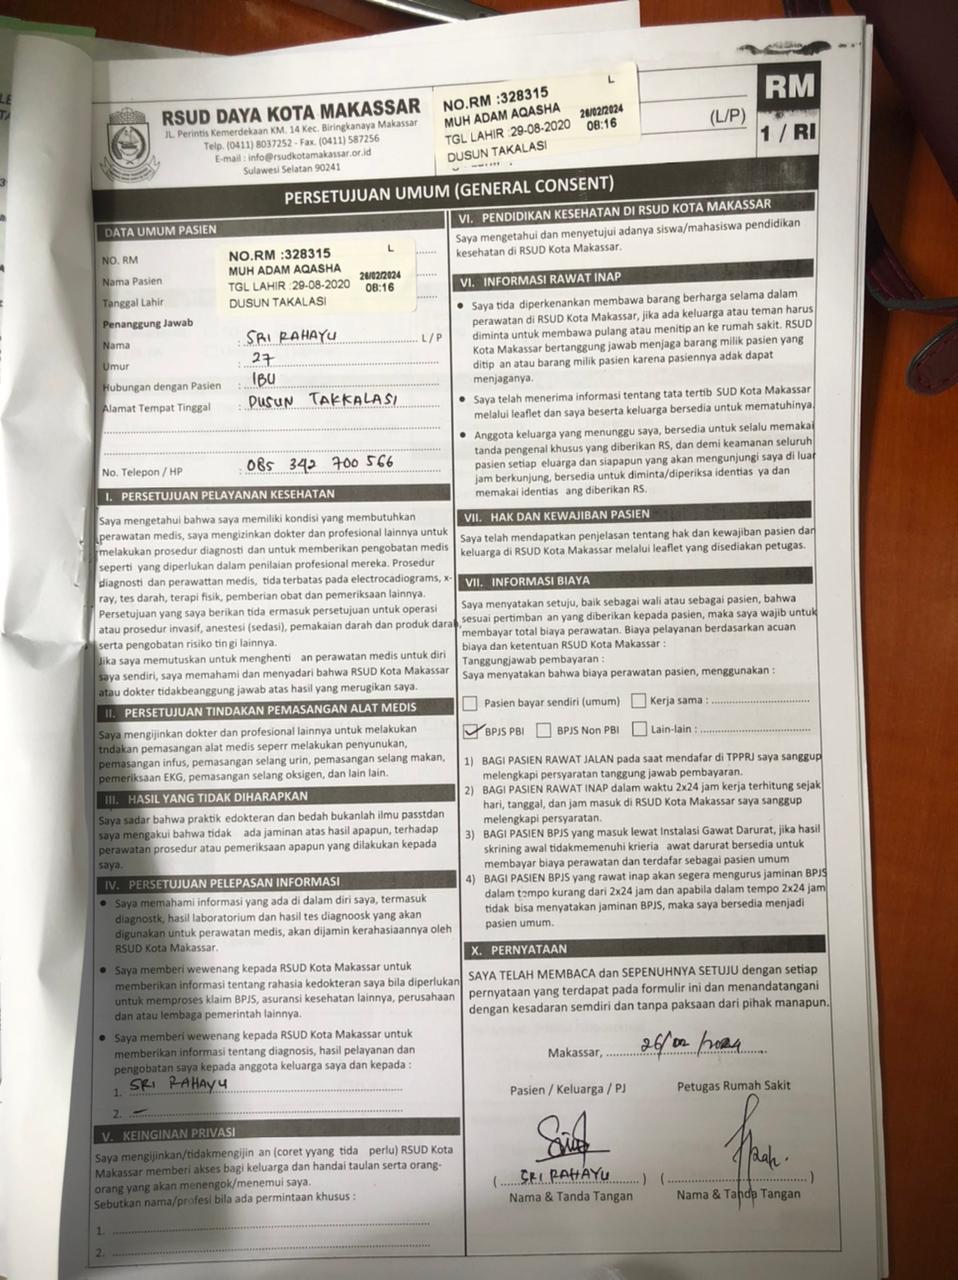 RSUD DAYA KOTA MAKASSAR
JL. Perintis Kemerdekaan KM. 14 Kec. Biringkanaya Makassar
Telp. (0411) 8037252 - Fax. (0411) 587256
E-mail : info@rsudkotamakassar.or.id
Sulawesi Selatan 90241
L
NO.RM :328315
MUH ADAM AQASHA 26/02/2024
TGL LAHIR :29-08-2020 08:16
DUSUN TAKALASI
(L/P)
RM
1 / RI
PERSETUJUAN UMUM (GENERAL CONSENT)
DATA UMUM PASIEN
NO. RM
Nama Pasien
Tanggal Lahir
L
NO.RM :328315
MUH ADAM AQASHA 26/02/2024
TGL LAHIR :29-08-2020 08:16
DUSUN TAKALASI
Penanggung Jawab
Nama : SRI RAHAYU L / P
Umur : 27
Hubungan dengan Pasien : IBU
Alamat Tempat Tinggal : DUSUN TAKKALASI
No. Telepon / HP : 085 342 700 566
I. PERSETUJUAN PELAYANAN KESEHATAN
Saya mengetahui bahwa saya memiliki kondisi yang membutuhkan
perawatan medis, saya mengizinkan dokter dan profesional lainnya untuk
melakukan prosedur diagnosti dan untuk memberikan pengobatan medis
seperti yang diperlukan dalam penilaian profesional mereka. Prosedur
diagnosti dan perawattan medis, tida terbatas pada electrocadiograms, x-
ray, tes darah, terapi fisik, pemberian obat dan pemeriksaan lainnya.
Persetujuan yang saya berikan tida ermasuk persetujuan untuk operasi
atau prosedur invasif, anestesi (sedasi), pemakaian darah dan produk darah,
serta pengobatan risiko tin gi lainnya.
Jika saya memutuskan untuk menghenti an perawatan medis untuk diri
saya sendiri, saya memahami dan menyadari bahwa RSUD Kota Makassar
atau dokter tidakbeanggung jawab atas hasil yang merugikan saya.
II. PERSETUJUAN TINDAKAN PEMASANGAN ALAT MEDIS
Saya mengijinkan dokter dan profesional lainnya untuk melakukan
tndakan pemasangan alat medis seperr melakukan penyunukan,
pemasangan infus, pemasangan selang urin, pemasangan selang makan,
pemeriksaan EKG, pemasangan selang oksigen, dan lain lain.
III. HASIL YANG TIDAK DIHARAPKAN
Saya sadar bahwa praktik edokteran dan bedah bukanlah ilmu passtdan
saya mengakui bahwa tidak ada jaminan atas hasil apapun, terhadap
perawatan prosedur atau pemeriksaan apapun yang dilakukan kepada
saya.
IV. PERSETUJUAN PELEPASAN INFORMASI
• Saya memahami informasi yang ada di dalam diri saya, termasuk
diagnostk, hasil laboratorium dan hasil tes diagnoosk yang akan
digunakan untuk perawatan medis, akan dijamin kerahasiaannya oleh
RSUD Kota Makassar.
• Saya memberi wewenang kepada RSUD Kota Makassar untuk
memberikan informasi tentang rahasia kedokteran saya bila diperlukan
untuk memproses klaim BPJS, asuransi kesehatan lainnya, perusahaan
dan atau lembaga pemerintah lainnya.
• Saya memberi wewenang kepada RSUD Kota Makassar untuk
memberikan informasi tentang diagnosis, hasil pelayanan dan
pengobatan saya kepada anggota keluarga saya dan kepada :
1. SRI RAHAYU
2. –
V. KEINGINAN PRIVASI
Saya mengijinkan/tidakmengijin an (coret yyang tida perlu) RSUD Kota
Makassar memberi akses bagi keluarga dan handai taulan serta orang-
orang yang akan menengok/menemui saya.
Sebutkan nama/profesi bila ada permintaan khusus :
1.
2.
VI. PENDIDIKAN KESEHATAN DI RSUD KOTA MAKASSAR
Saya mengetahui dan menyetujui adanya siswa/mahasiswa pendidikan
kesehatan di RSUD Kota Makassar.
VI. INFORMASI RAWAT INAP
• Saya tida diperkenankan membawa barang berharga selama dalam
perawatan di RSUD Kota Makassar, jika ada keluarga atau teman harus
diminta untuk membawa pulang atau menitip an ke rumah sakit. RSUD
Kota Makassar bertanggung jawab menjaga barang milik pasien yang
ditip an atau barang milik pasien karena pasiennya adak dapat
menjaganya.
• Saya telah menerima informasi tentang tata tertib SUD Kota Makassar
melalui leaflet dan saya beserta keluarga bersedia untuk mematuhinya.
• Anggota keluarga yang menunggu saya, bersedia untuk selalu memakai
tanda pengenal khusus yang diberikan RS, dan demi keamanan seluruh
pasien setiap eluarga dan siapapun yang akan mengunjungi saya di luar
jam berkunjung, bersedia untuk diminta/diperiksa identias ya dan
memakai identias ang diberikan RS.
VII. HAK DAN KEWAJIBAN PASIEN
Saya telah mendapatkan penjelasan tentang hak dan kewajiban pasien dan
keluarga di RSUD Kota Makassar melalui leaflet yang disediakan petugas.
VII. INFORMASI BIAYA
Saya menyatakan setuju, baik sebagai wali atau sebagai pasien, bahwa
sesuai pertimban an yang diberikan kepada pasien, maka saya wajib untuk
membayar total biaya perawatan. Biaya pelayanan berdasarkan acuan
biaya dan ketentuan RSUD Kota Makassar :
Tanggungjawab pembayaran :
Saya menyatakan bahwa biaya perawatan pasien, menggunakan :
Pasien bayar sendiri (umum) Kerja sama :
BPJS PBI BPJS Non PBI Lain-lain :
1) BAGI PASIEN RAWAT JALAN pada saat mendafar di TPPRJ saya sanggup
melengkapi persyaratan tanggung jawab pembayaran.
2) BAGI PASIEN RAWAT INAP dalam waktu 2x24 jam kerja terhitung sejak
hari, tanggal, dan jam masuk di RSUD Kota Makassar saya sanggup
melengkapi persyaratan.
3) BAGI PASIEN BPJS yang masuk lewat Instalasi Gawat Darurat, jika hasil
skrining awal tidakmemenuhi krieria awat darurat bersedia untuk
membayar biaya perawatan dan terdafar sebagai pasien umum
4) BAGI PASIEN BPJS yang rawat inap akan segera mengurus jaminan BPJS
dalam tempo kurang dari 2x24 jam dan apabila dalam tempo 2x24 jam
tidak bisa menyatakan jaminan BPJS, maka saya bersedia menjadi
pasien umum.
X. PERNYATAAN
SAYA TELAH MEMBACA dan SEPENUHNYA SETUJU dengan setiap
pernyataan yang terdapat pada formulir ini dan menandatangani
dengan kesadaran semdiri dan tanpa paksaan dari pihak manapun.
Makassar, 26/02/2024
Pasien / Keluarga / PJ Petugas Rumah Sakit
( SRI RAHAYU ) ( )
Nama & Tanda Tangan Nama & Tanda Tangan